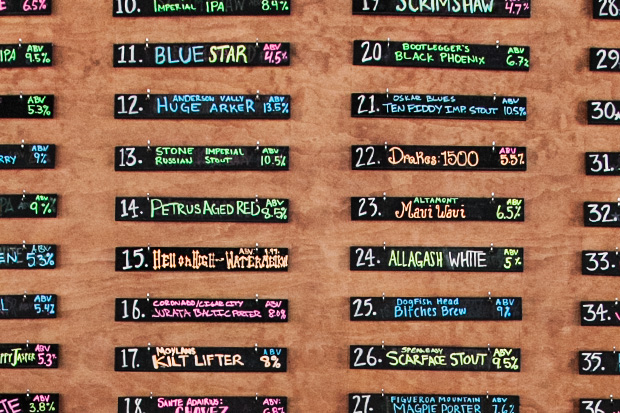 6.5%
10. IMPERIAL IPA ABV 8.4%
19 SCRIMSHAW 4.7%
28
IPA ABV 9.5%
11. BLUE STAR ABV 4.5%
20 BOOTLEGGER'S ABV
BLACK PHOENIX 6.7%
29
ABV 5.3%
12. ANDERSON VALLEY ABV
HUGE ARKER 13.5%
21. OSKAR BLUES ABV
TEN FIDDY IMP. STOUT 10.5%
30
ABV 9%
13. STONE IMPERIAL ABV
RUSSIAN STOUT 10.5%
22. DRAKES 1500 ABV 5.5%
31.
ABV 9%
14. PETRUS AGED RED ABV 8.5%
23. ALTAMONT ABV
Maui Waui 6.5%
32.
ABV 5.3%
15. HELL OR HIGH WATERMELON
24. ALLAGASH WHITE ABV 5%
33.
ABV 5.4%
16. CORONADO/CIGAR CITY ABV
JURATA BALTIC PORTER 8.0%
25. DOGFISH HEAD ABV
BITCHES BREW 9%
34.
ABV 5.3%
17. MOYLANS ABV
KILT LIFTER 8%
26. SPEAKEASY ABV
SCARFACE STOUT 9.5%
35.
ABV 3.8%
18. SANTE ADAIRIUS: ABV
CHAVEZ
27. FIGUEROA MOUNTAIN ABV
MAGPIE PORTER 7.6%
36